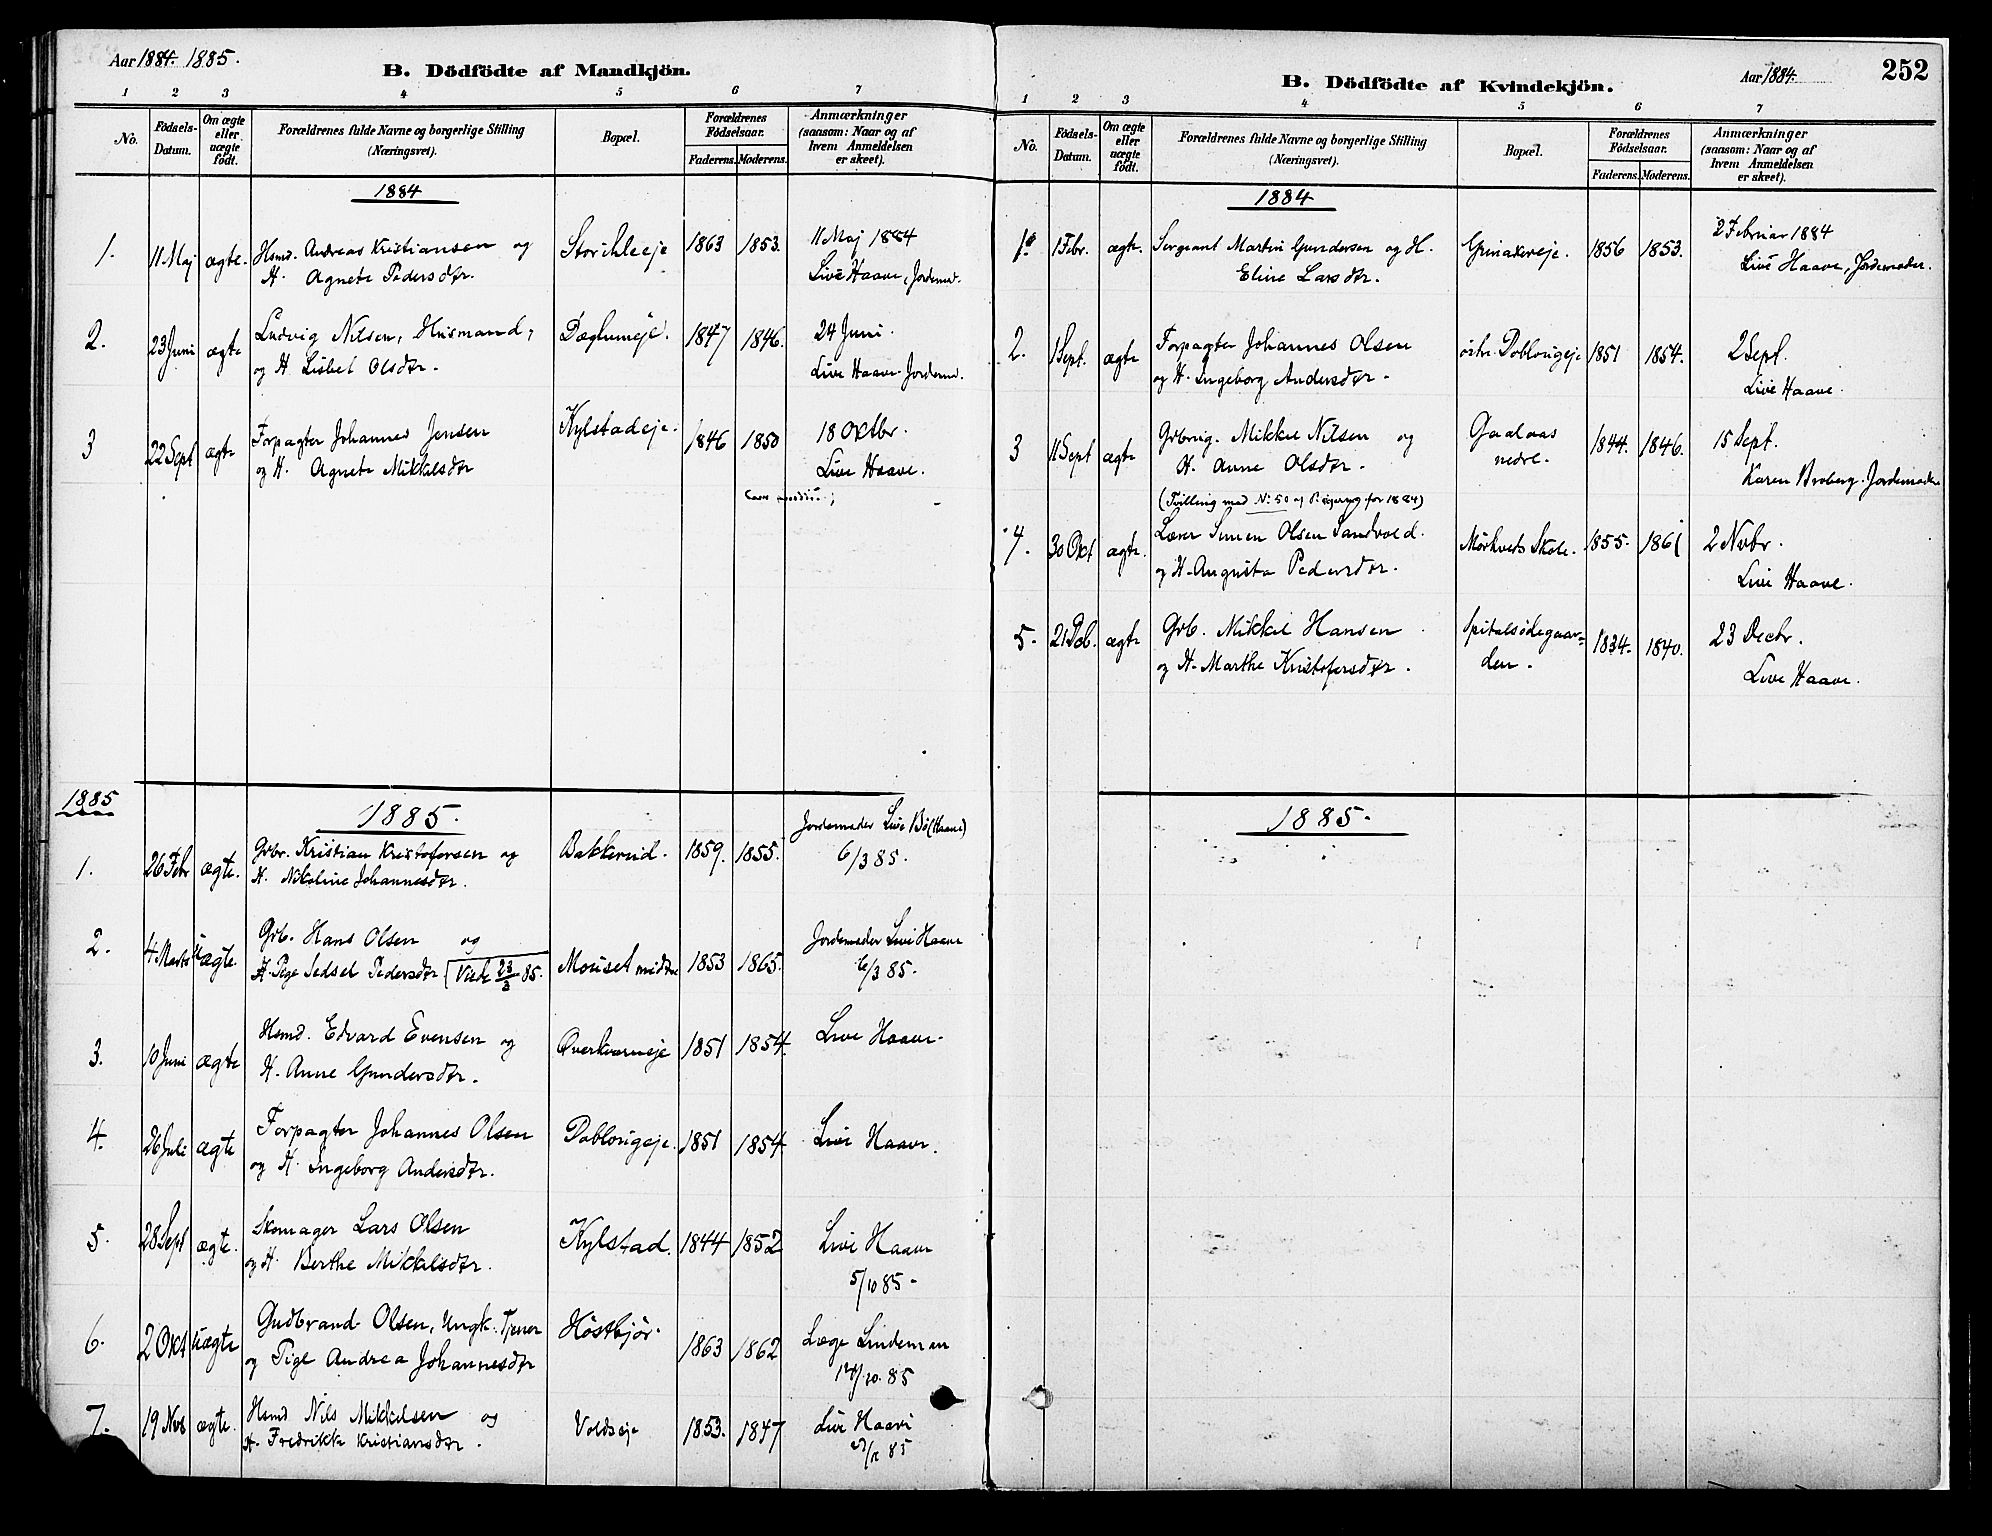 Aar 1884. 1885.
B. Dödfödte af Mandkjön.
1 2 3 4 5 6 7
No.
Födsels-Datum.
Om ægte eller uægte födt.
Forældrenes fulde Navne og borgerlige Stilling (Næringsvei).
Bopæl.
Forældrenes Födselsaar.
Faderens. Moderens.
Anmærkninger (saasom: Naar og af hvem Anmeldelsen er skeet).
1884
1. 11 Maj ægte. Hsmd. Andreas Kristiansen og 1863 1853. 11 Maj 1884
H. Agnete Pedersdtr. Live Haave, Jordemd.
2. 23 Juni ægte Ludvig Nilsen, Husmand, 1847 1846. 24 Juni.
og H. Lisbet Olsdtr. Live Haave Jordemd.
3 22 Sept ægte Forpagter Johannes Jensen Kylstadeje. 1846 1850 18 Oktbr.
og H. Agnete Mikkelsdtr Live Haave.
1885
1885.
Jordemoder Live Bö (Haave)
1. 26 Febr ægte. Grbr. Kristian Kristofersen og Bakkerud. 1859. 1855. 6/3 85.
H. Nikoline Johannesdtr.
2. 4 Marts uægte. Grb. Hans Olsen og Jordemoder Live Haave
Pige Sedsel Pedersdtr Viede 23/3 85. Mouset midtre 1853 1865. 6/3 85.
3. 10 Juni ægte Hsmd. Edvard Evensen og Överkverneje 1851 1854. Live Haave.
H. Anne Gundersdtr.
4. 26 Juli ægte Forpagter Johannes Olsen Doblougeje. 1851 1854 Live Haave.
og H. Ingeborg Andersdtr.
5. 28 Sept ægte. Skomager Lars Olsen Kylstad. 1844 1852 Live Haave
og H. Berthe Mikkelsdtr. 5/10 85.
6. 2 Okt uægte Gudbrand Olsen, Ungk. Tjener Höstbjör. 1863 1862 Læge Lindeman
og Pige Andrea Johannesdtr 10. 85
7. 19 Nvb ægte. Hsmd Nils Mikkelsen og Voldseje 1853. 1847 Live Haave
H. Fredrikke Kristiansdtr. 85
Aar 1884.
252
B. Dödfödte af Kvindekjön.
1 2 3 4 5 6 7
No.
Födsels-Datum.
Om ægte eller uægte födt.
Forældrenes fulde Navne og borgerlige Stilling (Næringsvei).
Bopæl.
Forældrenes Födselsaar.
Faderens. Moderens.
Anmærkninger (saasom: Naar og af hvem Anmeldelsen er skeet).
1884
1. 1 Febr. ægte. Sergeant Martin Gundersen og H. Grinakereje. 1856 1853. 2 Februar 1884
Eline Larsdtr. Live Haave, Jordemoder.
2. 1 Sept. ægte Forpagter Johannes Olsen östre Doblougeje 1851 1854. 2 Sept.
og H. Ingeborg Andersdtr. Live Haave.
3 11 Sept ægte Grbrug. Mikkel Nilsen og Gaalaas 1844. 1846. 15 Sept.
H. Anne Olsdtr. nedre. Karen Broberg. Jordemoder
(Tvilling med No 50 af for 1884)
4. 30 Okt ægte. Lærer Simen Olsen Sandvold. Mörkveds Skole. 1855. 1861 2 Nvbr.
og H. Augusta Pedersdtr. Live Haave.
5. 21 Dcb. ægte Grb. Mikkel Hansen Spitalsödegaar- 1834. 1840. 23 Decbr.
og H. Marthe Kristofersdtr. den. Live Haave.
1885.